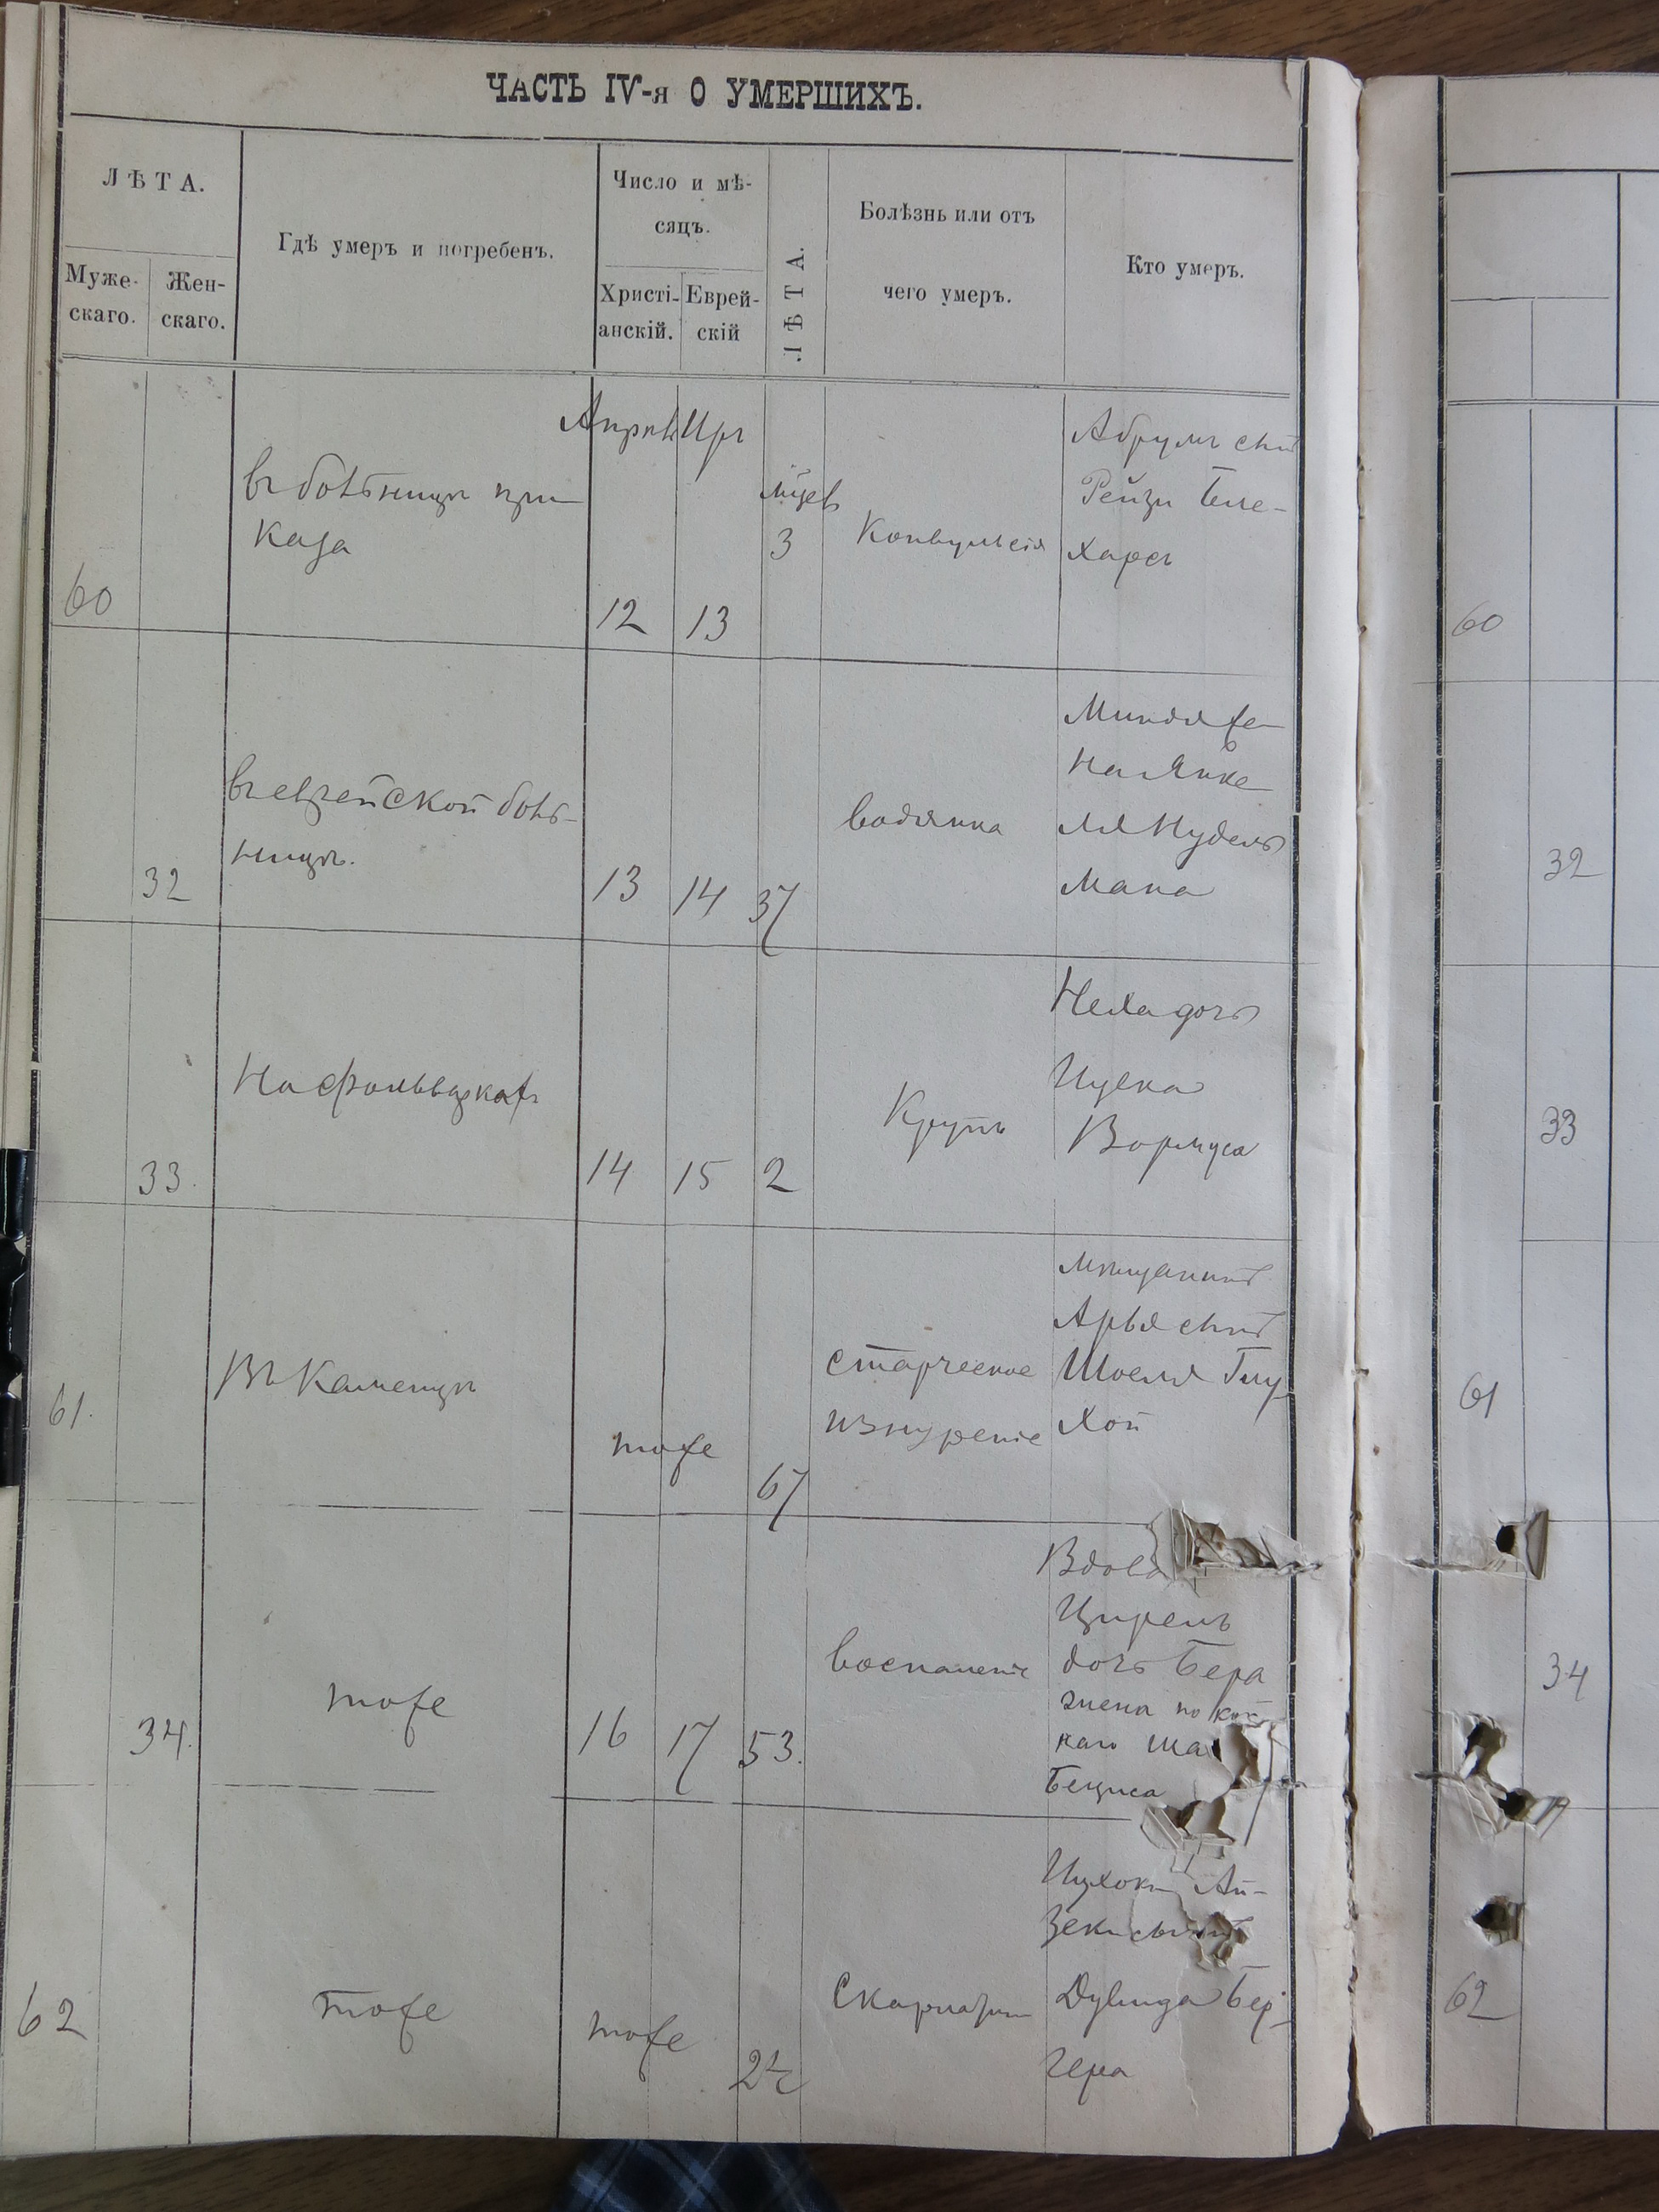 ЧАСТЬ IV-я О УМЕРШИХЪ.
ЛѢТА.
Муже-
скаго.
Жен-
скаго.
Гдѣ умеръ и погребенъ.
Число и мѣ-
сяцъ.
Христі-
анскій.
Еврей-
скій
ЛѢТА.
Болѣзнь или отъ
чего умеръ.
Кто умеръ.
60
въ больницѣ при-
каза
Апрѣль
Иръ
12
13
3
Конвульсія
Абрумъ сынъ
Рейзи
32
въ еврейской боль-
ницѣ.
13
14
37
водянка
Миндля же-
на Янке
ля Нудель
мана
33.
На фольваркахъ
14
15
2
Крупъ
Неха дочь
Ицека
Вормуса
61.
Въ Каменцѣ
тоже
67
старческое
изнуреніе
мѣщанинъ
Арья сынъ
Шоеля Глу-
хой
34.
тоже
16
17
53.
воспаленіе
Вдова
Цирель
дочь Бера
жена по
62
тоже
тоже
24
Скарлатин
Ицхокъ Ай-
зекъ сынъ
Дувида Бер-
гера
60
32
33
61
34
62